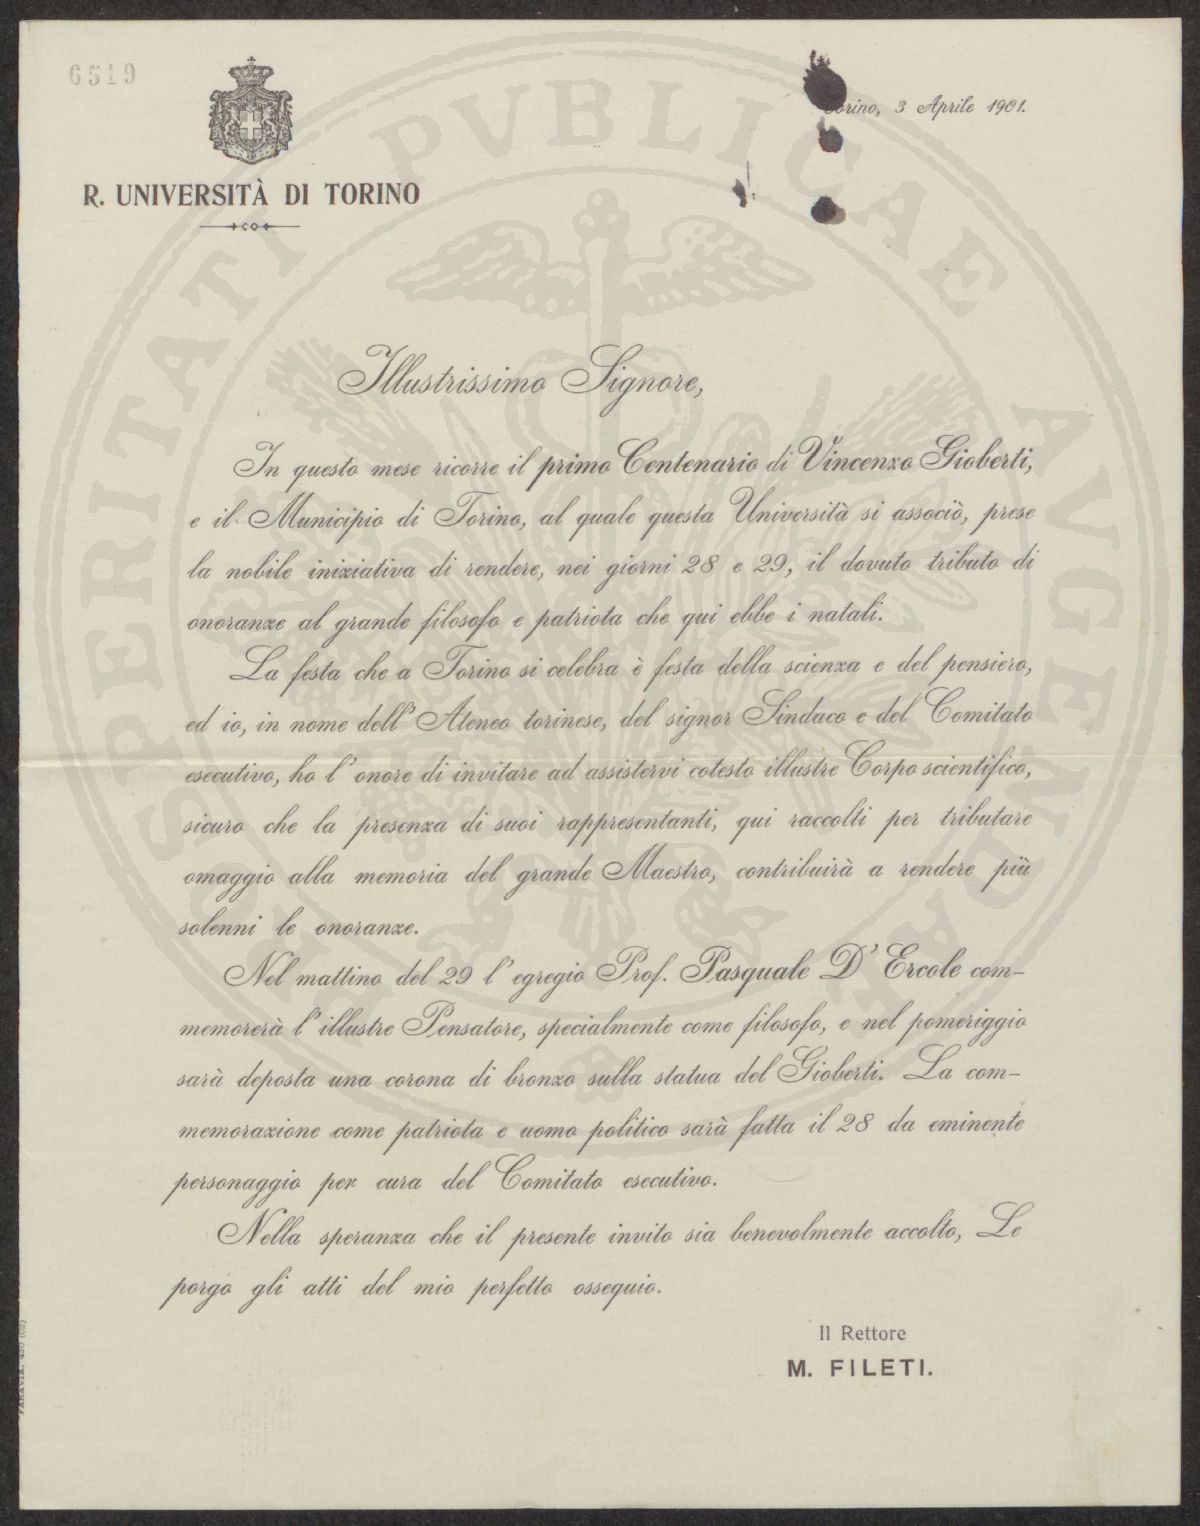 6519
R. UNIVERSITÀ DI TORINO
Torino, 3 Aprile 1901.
Illustrissimo Signore,
In questo mese ricorre il primo Centenario di Vincenzo Gioberti,
e il Municipio di Torino, al quale questa Università si associò, prese
la nobile iniziativa di rendere, nei giorni 28 e 29, il dovuto tributo di
onoranze al grande filosofo e patriota che qui ebbe i natali.
La festa che a Torino si celebra è festa della scienza e del pensiero,
ed io, in nome dell' Ateneo torinese, del signor Sindaco e del Comitato
esecutivo, ho l' onore di invitare ad assistervi cotesto illustre Corpo scientifico,
sicuro che la presenza di suoi rappresentanti, qui raccolti per tributare
omaggio alla memoria del grande Maestro, contribuirà a rendere più
solenni le onoranze.
Nel mattino del 29 l' egregio Prof. Pasquale D' Ercole com-
memorerà l' illustre Pensatore, specialmente come filosofo, e nel pomeriggio
sarà deposta una corona di bronzo sulla statua del Gioberti. La com-
memorazione come patriota e uomo politico sarà fatta il 28 da eminente
personaggio per cura del Comitato esecutivo.
Nella speranza che il presente invito sia benevolmente accolto, Le
porgo gli atti del mio perfetto ossequio.
Il Rettore
M. FILETI.
PROSPERITATI PVBLICAE AVGENDAE